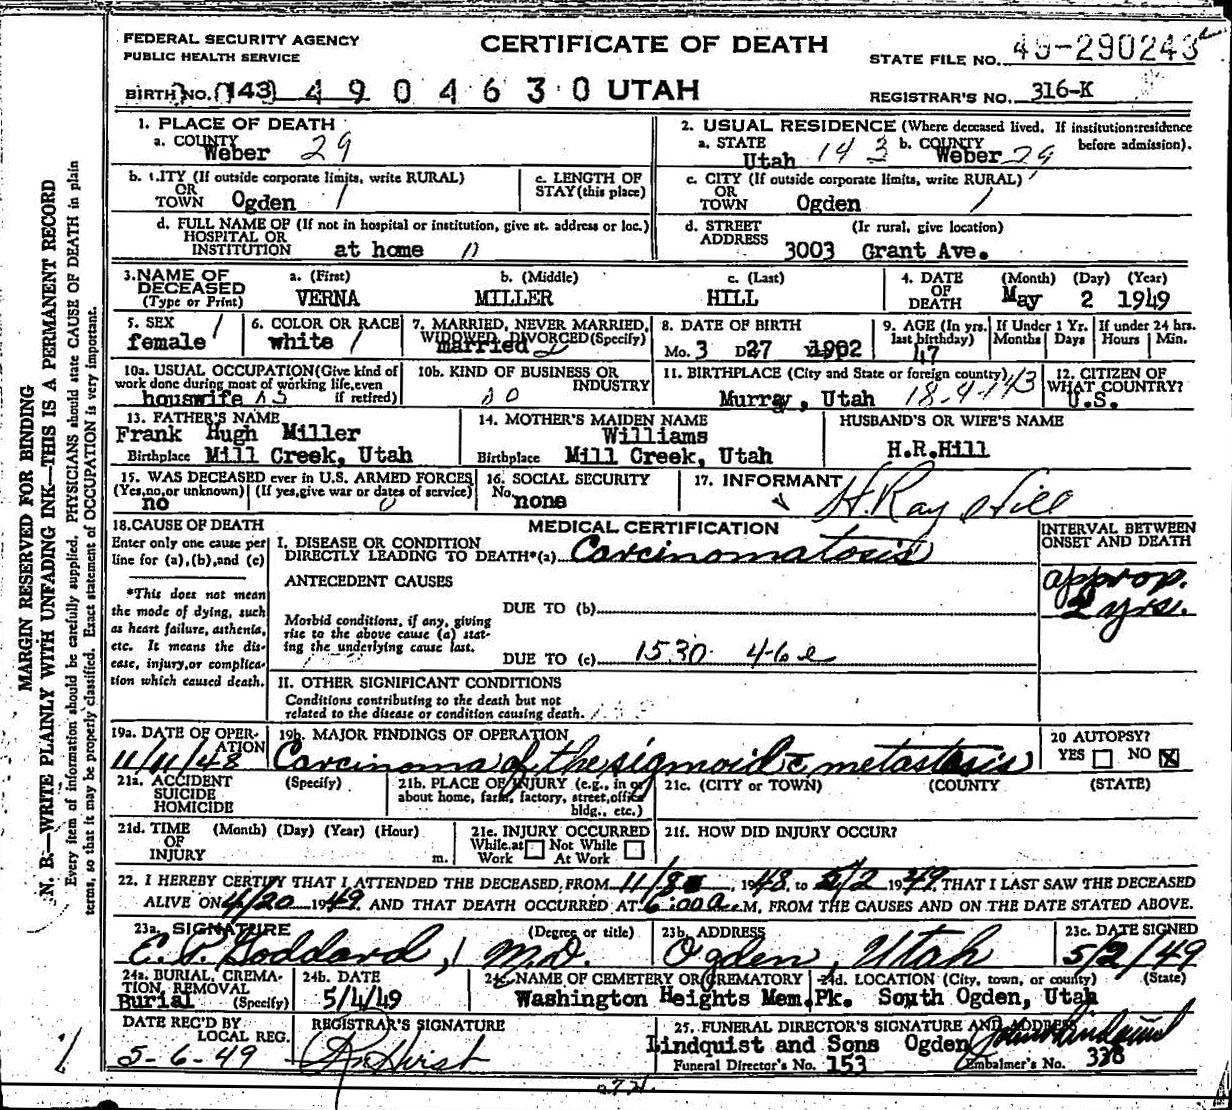 FEDERAL SECURITY AGENCY
PUBLIC HEALTH SERVICE
CERTIFICATE OF DEATH
STATE FILE NO. 49-290243
BIRTH NO. (143) 4 9 0 4 6 3 0 UTAH
REGISTRAR'S NO. 316-K
MARGIN RESERVED FOR BINDING
N. B.—WRITE PLAINLY WITH UNFADING INK—THIS IS A PERMANENT RECORD
Every item of information should be carefully supplied. PHYSICIANS should state CAUSE OF DEATH in plain
terms, so that it may be properly classified. Exact statement of OCCUPATION is very important.
1. PLACE OF DEATH
a. COUNTY
Weber 29
2. USUAL RESIDENCE (Where deceased lived. If institution: residence
before admission).
a. STATE
Utah 143
b. COUNTY
Weber 29
b. CITY (If outside corporate limits, write RURAL)
OR
TOWN Ogden 1
c. LENGTH OF
STAY (this place)
c. CITY (If outside corporate limits, write RURAL)
OR
TOWN Ogden 1
d. FULL NAME OF (If not in hospital or institution, give st. address or loc.)
HOSPITAL OR
INSTITUTION at home 0
d. STREET (If rural, give location)
ADDRESS 3003 Grant Ave.
3. NAME OF DECEASED
(Type or Print)
a. (First)
VERNA
b. (Middle)
MILLER
c. (Last)
HILL
4. DATE OF DEATH
(Month) (Day) (Year)
May 2 1949
5. SEX
female 1
6. COLOR OR RACE
white 1
7. MARRIED, NEVER MARRIED,
WIDOWED, DIVORCED (Specify)
married 2
8. DATE OF BIRTH
Mo. 3 D 27 1902
9. AGE (In yrs. last birthday)
47
If Under 1 Yr.
Months Days
If under 24 hrs.
Hours Min.
10a. USUAL OCCUPATION (Give kind of
work done during most of working life, even
if retired)
houswife
10b. KIND OF BUSINESS OR
INDUSTRY
11. BIRTHPLACE (City and State or foreign country)
Murray, Utah 18-4-143
12. CITIZEN OF
WHAT COUNTRY?
U.S.
13. FATHER'S NAME
Frank Hugh Miller
Birthplace Mill Creek, Utah
14. MOTHER'S MAIDEN NAME
Williams
Birthplace Mill Creek, Utah
HUSBAND'S OR WIFE'S NAME
H.R.Hill
15. WAS DECEASED ever in U.S. ARMED FORCES
(Yes, no, or unknown) (If yes, give war or dates of service)
no 0
16. SOCIAL SECURITY
No. none
17. INFORMANT
H. Ray Hill
18. CAUSE OF DEATH
Enter only one cause per
line for (a), (b), and (c)
*This does not mean
the mode of dying, such
as heart failure, asthenia,
etc. It means the dis-
ease, injury, or complica-
tion which caused death.
MEDICAL CERTIFICATION
I. DISEASE OR CONDITION
DIRECTLY LEADING TO DEATH*(a) Carcinomatosis
ANTECEDENT CAUSES
DUE TO (b)
Morbid conditions, if any, giving
rise to the above cause (a) stat-
ing the underlying cause last.
DUE TO (c) 1530 46e
II. OTHER SIGNIFICANT CONDITIONS
Conditions contributing to the death but not
related to the disease or condition causing death.
INTERVAL BETWEEN
ONSET AND DEATH
approp.
2 yrs.
19a. DATE OF OPER-
ATION
11/11/48
19b. MAJOR FINDINGS OF OPERATION
Carcinoma of the sigmoid c̄ metastasis
20 AUTOPSY?
YES NO X
21a. ACCIDENT (Specify)
SUICIDE
HOMICIDE
21b. PLACE OF INJURY (e.g., in or
about home, farm, factory, street, office
bldg., etc.)
21c. (CITY or TOWN) (COUNTY) (STATE)
21d. TIME (Month) (Day) (Year) (Hour)
OF
INJURY m.
21e. INJURY OCCURRED
While at Work Not While At Work
21f. HOW DID INJURY OCCUR?
22. I HEREBY CERTIFY THAT I ATTENDED THE DECEASED, FROM 11/8, 1948, to 5/2 1949, THAT I LAST SAW THE DECEASED
ALIVE ON 4/20 1949 AND THAT DEATH OCCURRED AT 6:00 a. M, FROM THE CAUSES AND ON THE DATE STATED ABOVE.
23a. SIGNATURE (Degree or title)
E. P. Goddard, M.D.
23b. ADDRESS
Ogden, Utah
23c. DATE SIGNED
5/2/49
24a. BURIAL, CREMA-
TION, REMOVAL
Burial (Specify)
24b. DATE
5/4/49
24c. NAME OF CEMETERY OR CREMATORY
Washington Heights Mem.Pk.
24d. LOCATION (City, town, or county) (State)
South Ogden, Utah
DATE REC'D BY
LOCAL REG.
5-6-49
REGISTRAR'S SIGNATURE
Hurst
25. FUNERAL DIRECTOR'S SIGNATURE AND ADDRESS
Lindquist and Sons Ogden John Lindquist
Funeral Director's No. 153 Embalmer's No. 338